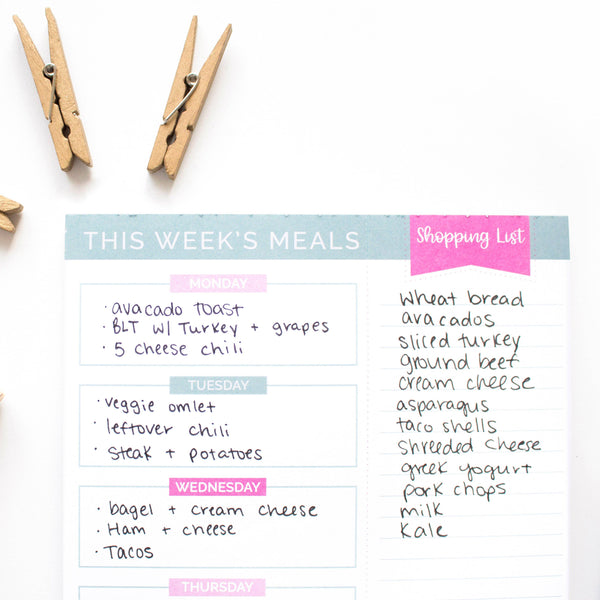 THIS WEEK'S MEALS
MONDAY
· avacado toast
· BLT w/ Turkey + grapes
· 5 cheese chili
TUESDAY
· veggie omlet
· leftover chili
· steak + potatoes
WEDNESDAY
· bagel + cream cheese
· Ham + cheese
· Tacos
THURSDAY
Shopping List
wheat bread
avacados
sliced turkey
ground beef
cream cheese
asparagus
taco shells
shreeded cheese
greek yogurt
pork chops
milk
Kale